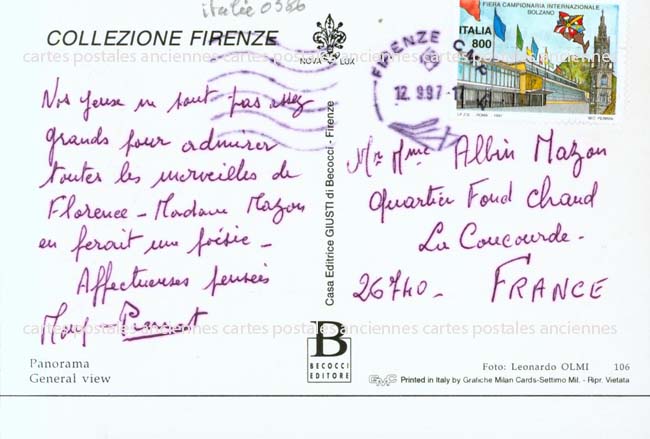 italie 0386
COLLEZIONE FIRENZE
NOVA LUX
FIERA CAMPIONARIA INTERNAZIONALE
BOLZANO
ITALIA
800
FIRENZE
12.9.97-17
cartes postales anciennes cartes postales anciennes cartes postales anciennes
Nos yeux ne sont pas assez
grands pour admirer
toutes les merveilles de
Florence - Madame Mazon
en ferait une poésie -
Affectueuses pensées
Casa Editrice GIUSTI di Becocci - Firenze
Mr Mme Albin Mazon
Quartier Fond Chaud
La Coucourde -
26740 - FRANCE
cartes postales anciennes cartes postales anciennes cartes postales anciennes
B
BECOCCI
EDITORE
Panorama
General view
Foto: Leonardo OLMI 106
Printed in Italy by Grafiche Milan Cards-Settimo Mil. - Ripr. Vietata